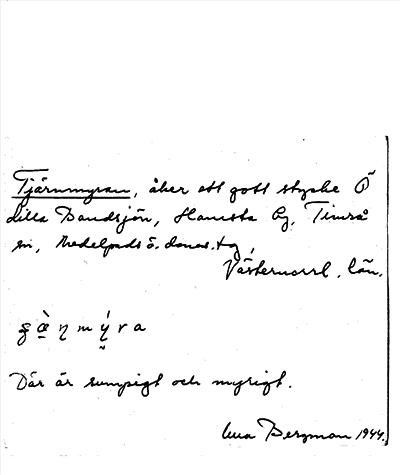 Tjärnmyran, åker ett gott stycke Ö
Lilla Bandsjön, Hamsta by, Timrå
sn, Medelpads ö. doms. tg,
Västernorrl. län.
Där är sumpigt och myrigt.
Bergman 1944.